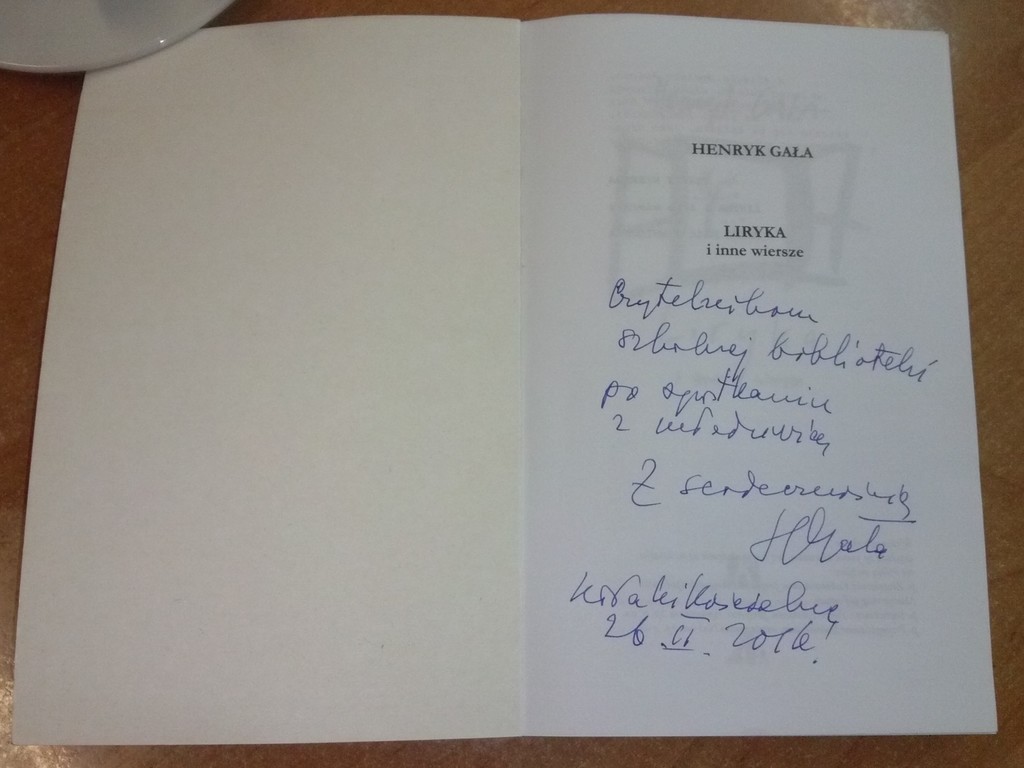 HENRYK GAŁA
LIRYKA
i inne wiersze
Czytelnikom
szkolnej biblioteki
po spotkaniu
z młodzieżą
Z serdecznością
HGała
Kołaki Kościelne
26.II.2016!